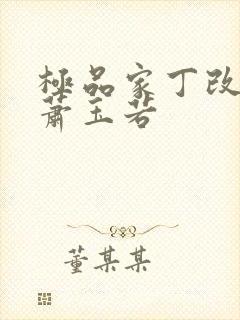 極品家丁改
蕭玉若
董某某